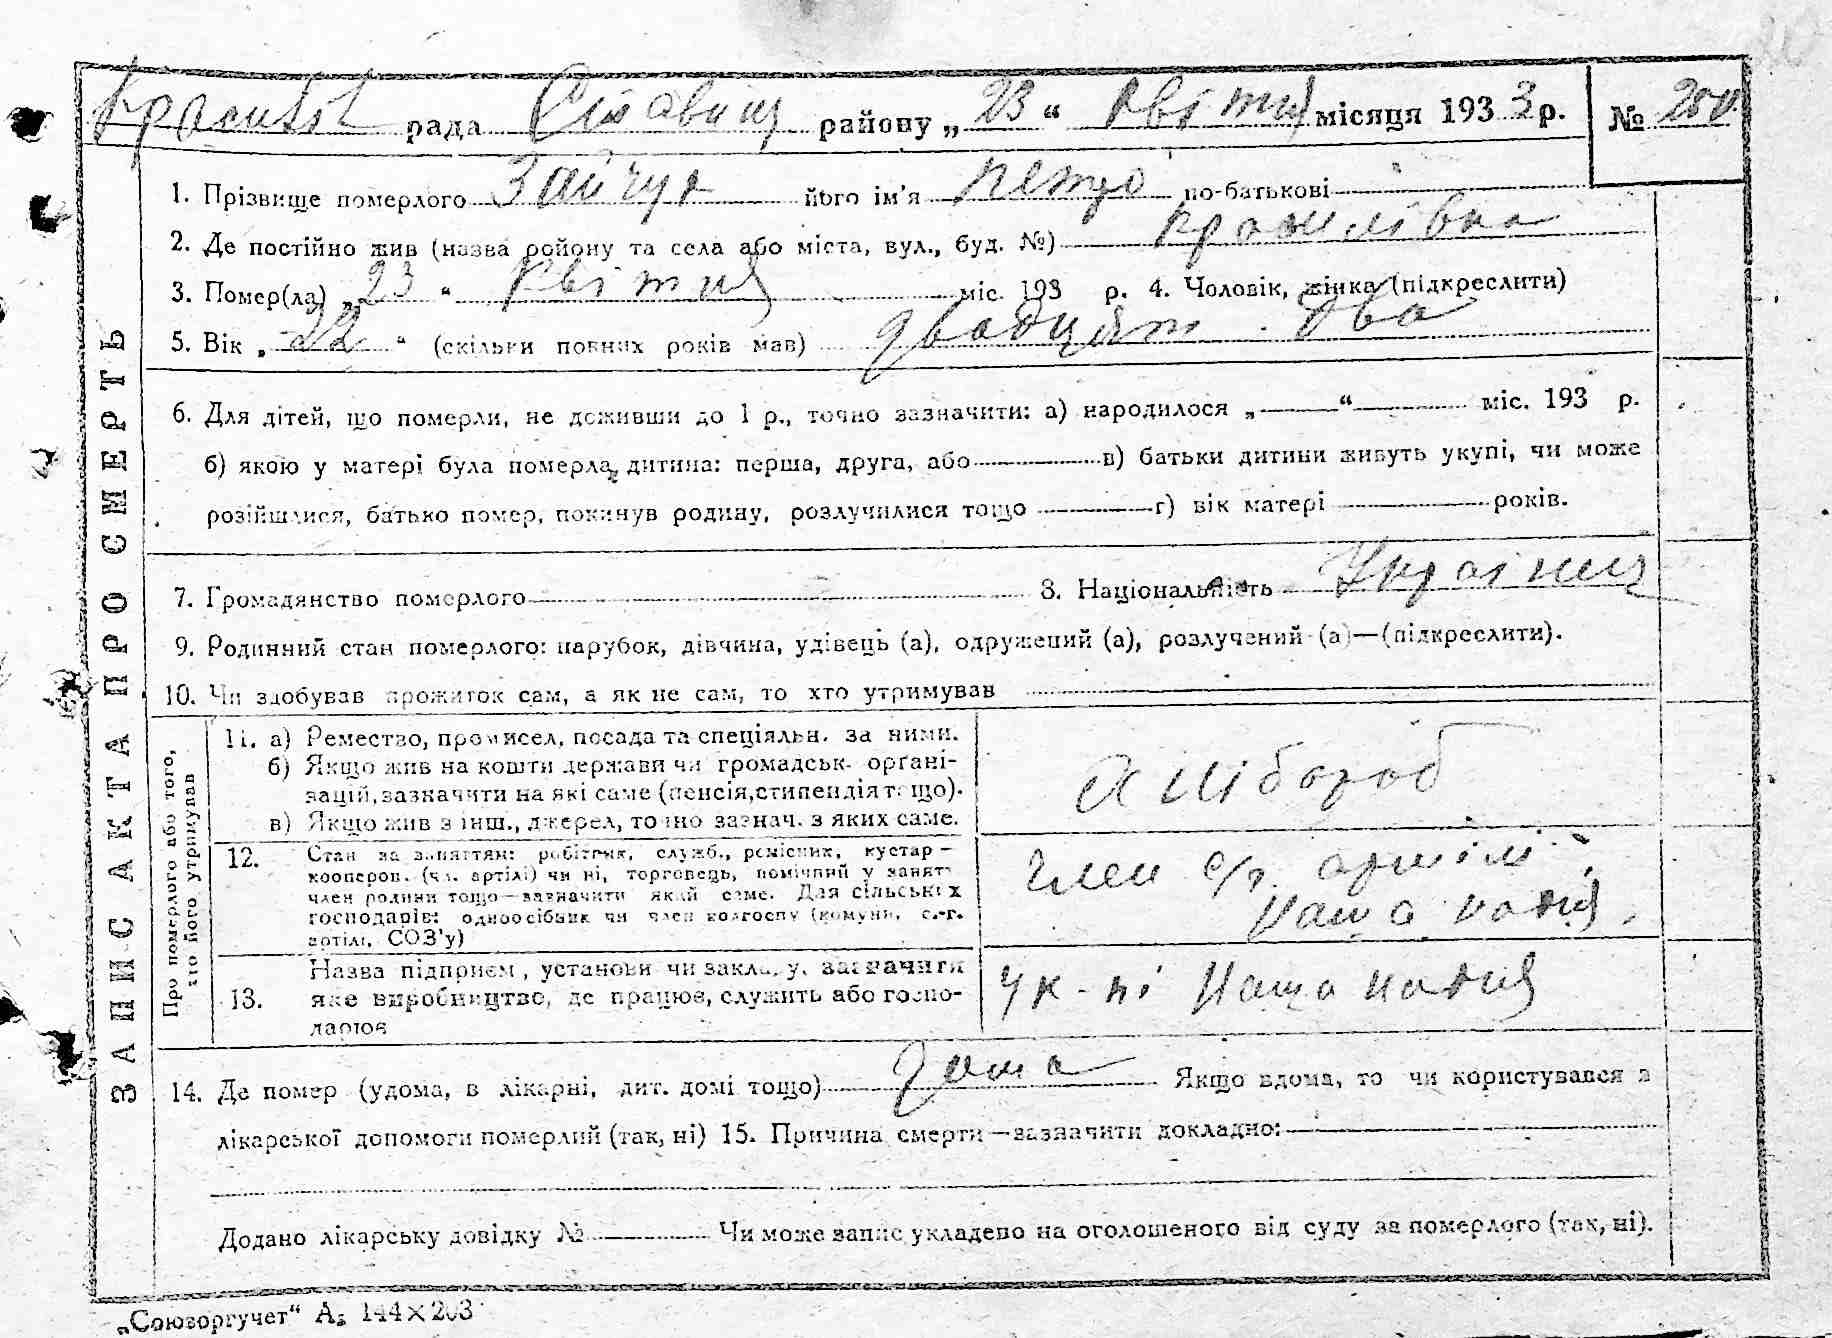 рада району „ 23 “ Квітня місяця 193 3 р. № 200
1. Прізвище померлого Зайчук його ім'я Петро по-батькові
2. Де постійно жив (назва ройону та села або міста, вул., буд. №)
3. Помер(ла) „ 23 “ Квітня міс. 193 р. 4. Чоловік, жінка (підкреслити)
5. Вік „ 22 “ (скільки повних років мав) двадцять два
6. Для дітей, що померли, не доживши до 1 р., точно зазначити: а) народилося „ “ міс. 193 р.
б) якою у матері була померла дитина: перша, друга, або в) батьки дитини живуть укупі, чи може
розійшлися, батько помер, покинув родину, розлучилися тощо г) вік матері років.
7. Громадянство померлого 8. Національність
9. Родинний стан померлого: парубок, дівчина, удівець (а), одружений (а), розлучений (а)—(підкреслити).
10. Чи здобував прожиток сам, а як не сам, то хто утримував
ЗАПИС АКТА ПРО СМЕРТЬ
Про померлого або того, хто його утримував
11. а) Ремество, промисел, посада та спеціяльн. за ними.
б) Якщо жив на кошти держави чи громадськ. органі-
зацій, зазначити на які саме (пенсія, стипендія тощо).
в) Якщо жив з інш., джерел, точно зазнач. з яких саме.
Хлібороб
12. Стан за заняттям: робітник, служб., ремісник, кустар—
кооперов. (чл. артілі) чи ні, торговець, помічний у занятт
член родини тощо—зазначити який саме. Для сільських
господарів: одноосібник чи член колгоспу (комуни, с.-г.
артілі, СОЗ'у)
Член с/г артілі
Наша надія.
13. Назва підприєм, установи чи закладу, зазначити
яке виробництво, де працює, служить або госпо-
дарює
Наша надія
14. Де помер (удома, в лікарні, дит. домі тощо) дома Якщо вдома, то чи користувався з
лікарської допомоги померлий (так, ні) 15. Причина смерти—зазначити докладно:
Додано лікарську довідку № Чи може запис укладено на оголошеного від суду за померлого (так, ні).
„Союзоргучет“ А₅ 144×203